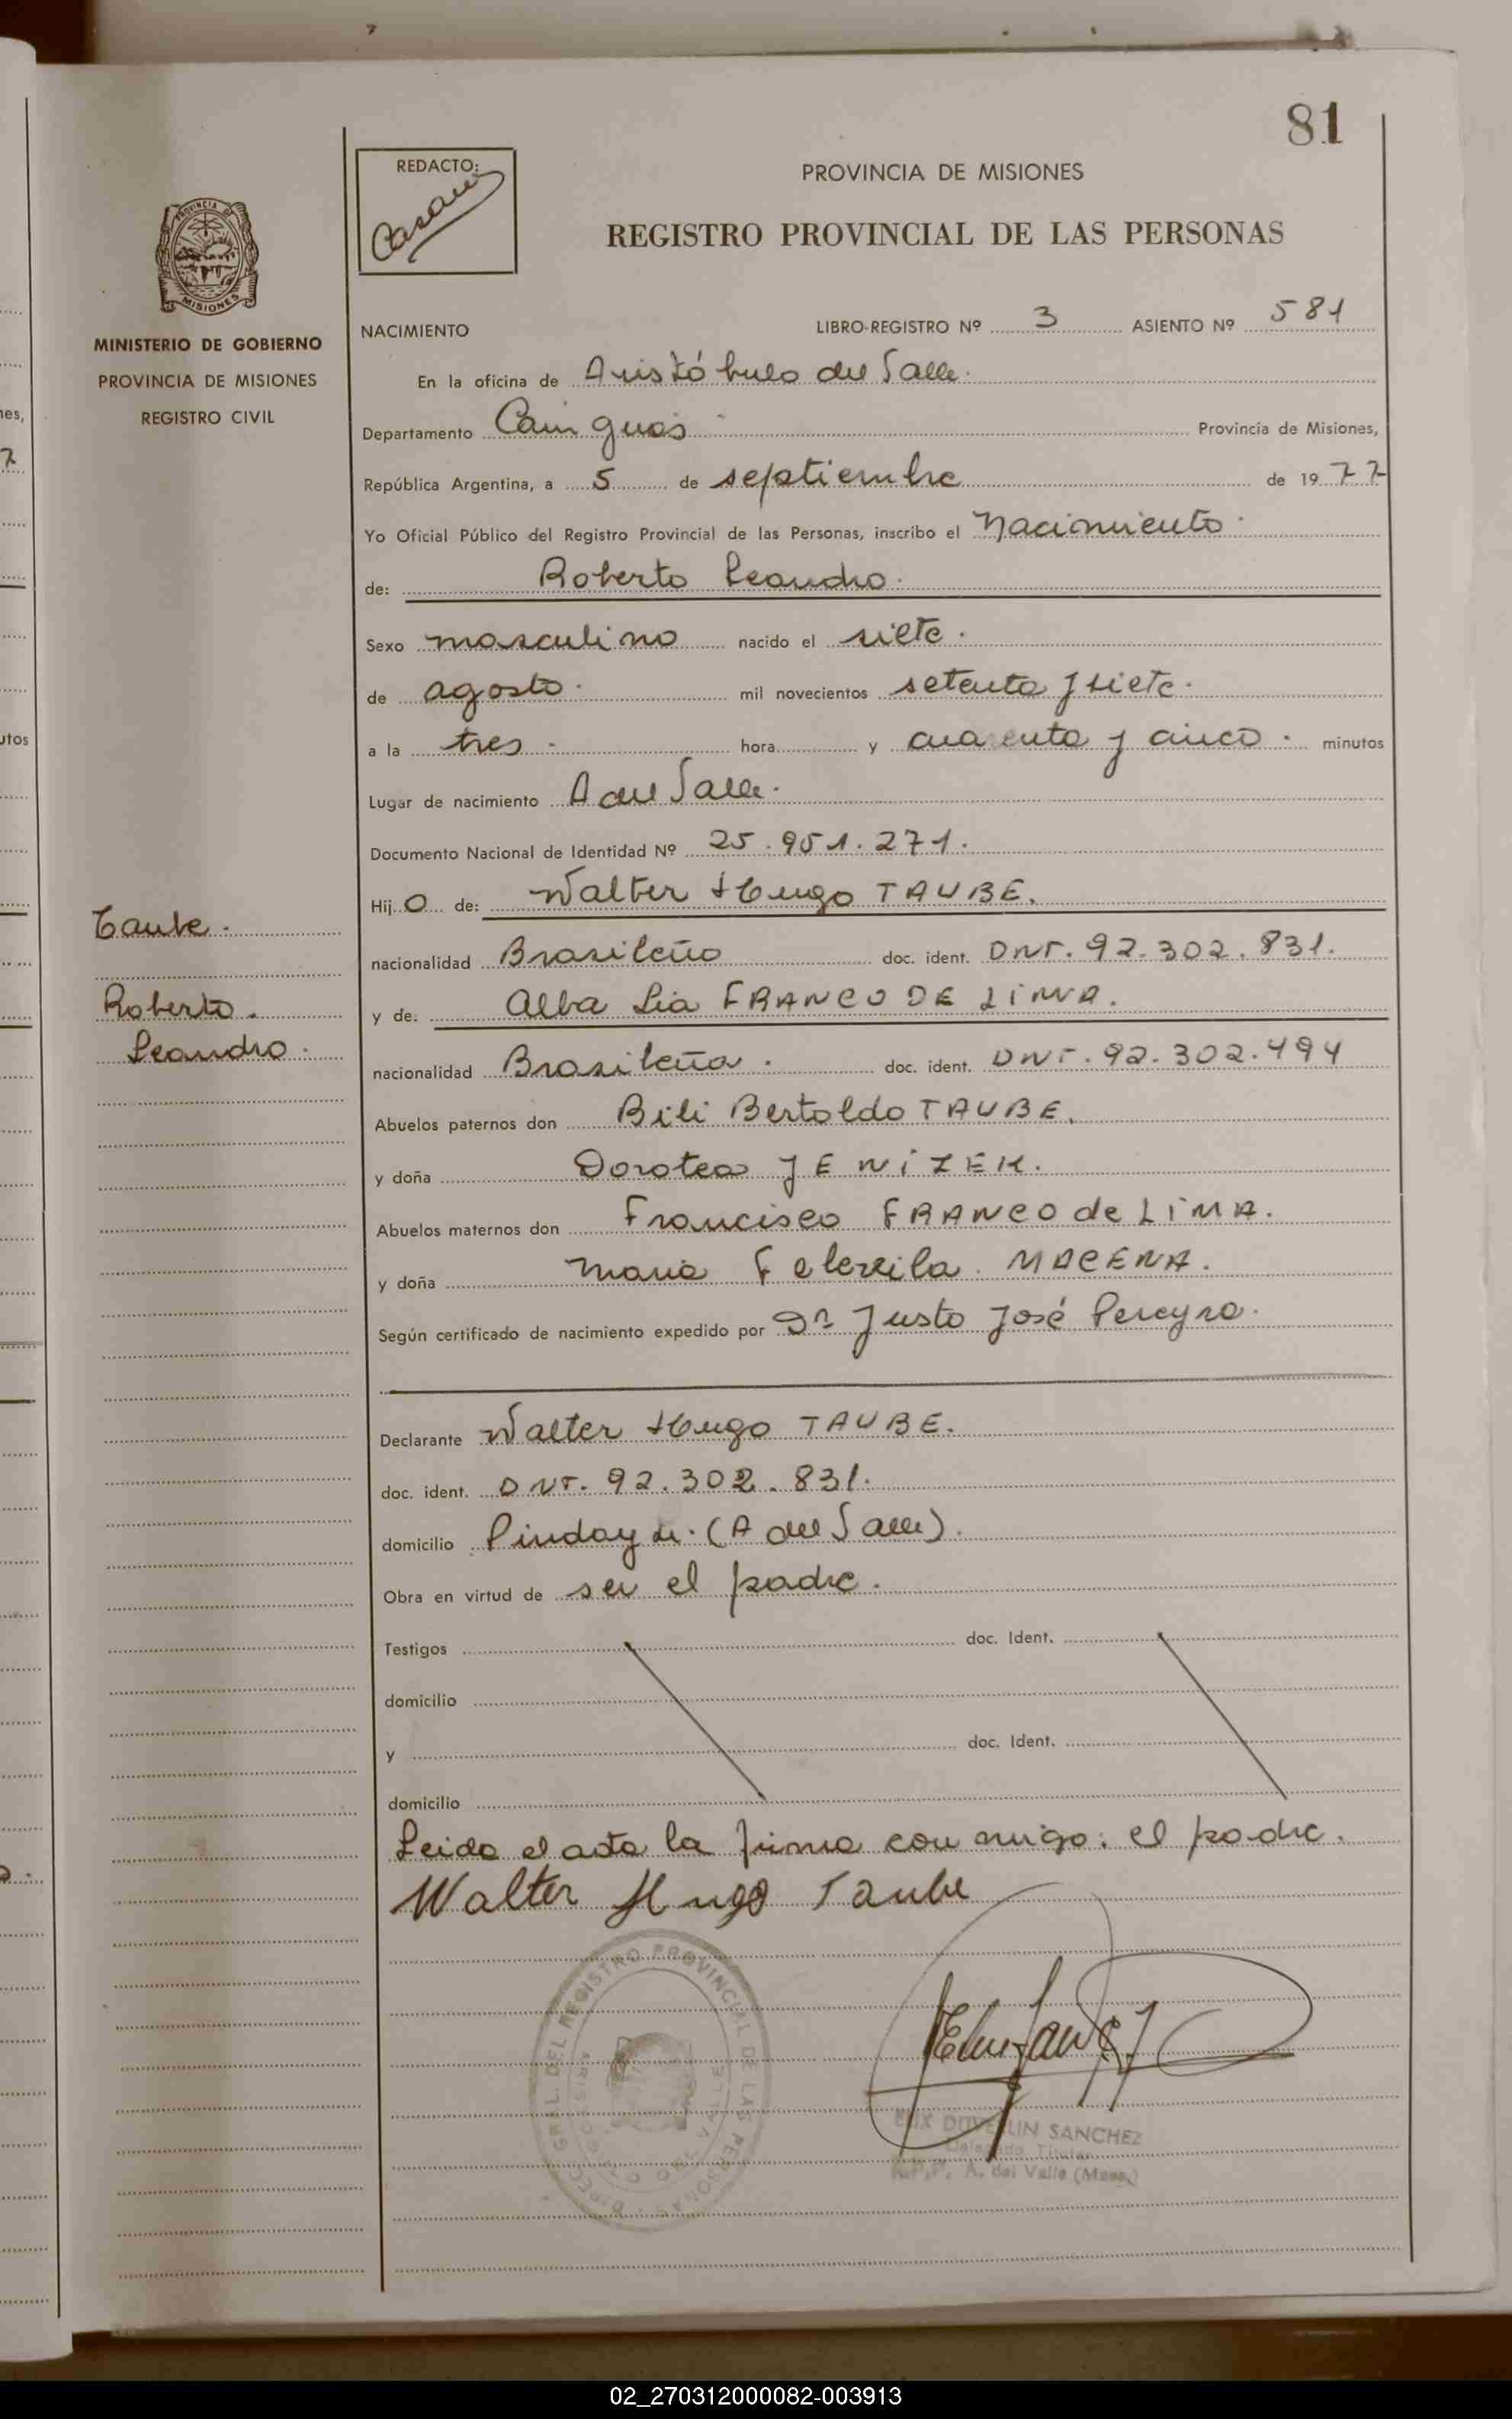 81
REDACTO:
PROVINCIA DE MISIONES
REGISTRO PROVINCIAL DE LAS PERSONAS
PROVINCIA DE
MISIONES
MINISTERIO DE GOBIERNO
PROVINCIA DE MISIONES
REGISTRO CIVIL
NACIMIENTO
LIBRO-REGISTRO Nº 3 ASIENTO Nº 581
En la oficina de Aristóbulo del Valle.
Departamento Cainguás Provincia de Misiones,
República Argentina, a 5 de septiembre de 1977
Yo Oficial Público del Registro Provincial de las Personas, inscribo el Nacimiento
de: Roberto Leandro.
Sexo masculino nacido el siete.
de agosto. mil novecientos setenta y siete.
a la tres hora y cuarenta y cinco. minutos
Lugar de nacimiento A del Valle.
Documento Nacional de Identidad Nº 25.951.271.
Hijo de: Walter Hugo TAUBE.
Taube.
nacionalidad Brasileño doc. ident. DNI. 92.302.831.
y de: Alba Lia FRANCO DE LIMA.
Roberto.
Leandro.
nacionalidad Brasileña. doc. ident. DNI. 92.302.494
Abuelos paternos don Bili Bertoldo TAUBE.
y doña Dorotea
Abuelos maternos don Francisco FRANCO de LIMA.
y doña Maria MACENA.
Según certificado de nacimiento expedido por Dr Justo José Pereyra.
Declarante Walter Hugo TAUBE.
doc. ident. DNI. 92.302.831.
domicilio Pindayti. (A del Valle).
Obra en virtud de ser el padre.
Testigos doc. Ident.
domicilio
y doc. Ident.
domicilio
Leida el acta la firma con migo: el padre.
Walter Hugo Taube
DIREC. GRAL. DEL REGISTRO PROVINCIAL DE LAS PERSONAS
SANCHEZ
Delegado Titular
R.P.P. A. del Valle (Mnes.)
02_270312000082-003913